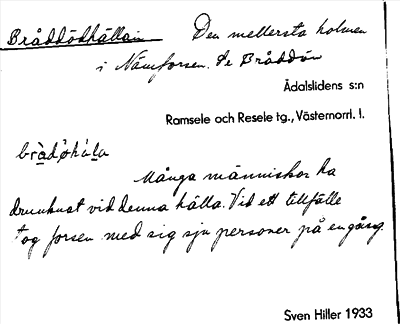 Bråddödhällan Den mellersta holmen
i Nämforsen. Se Bråddön
Ådalslidens s:n
Ramsele och Resele tg., Västernorrl. l.
Många människor ha
drunknat vid denna hälla. Vid ett tillfälle
tog forsen med sig sju personer på en gång.
Sven Hiller 1933